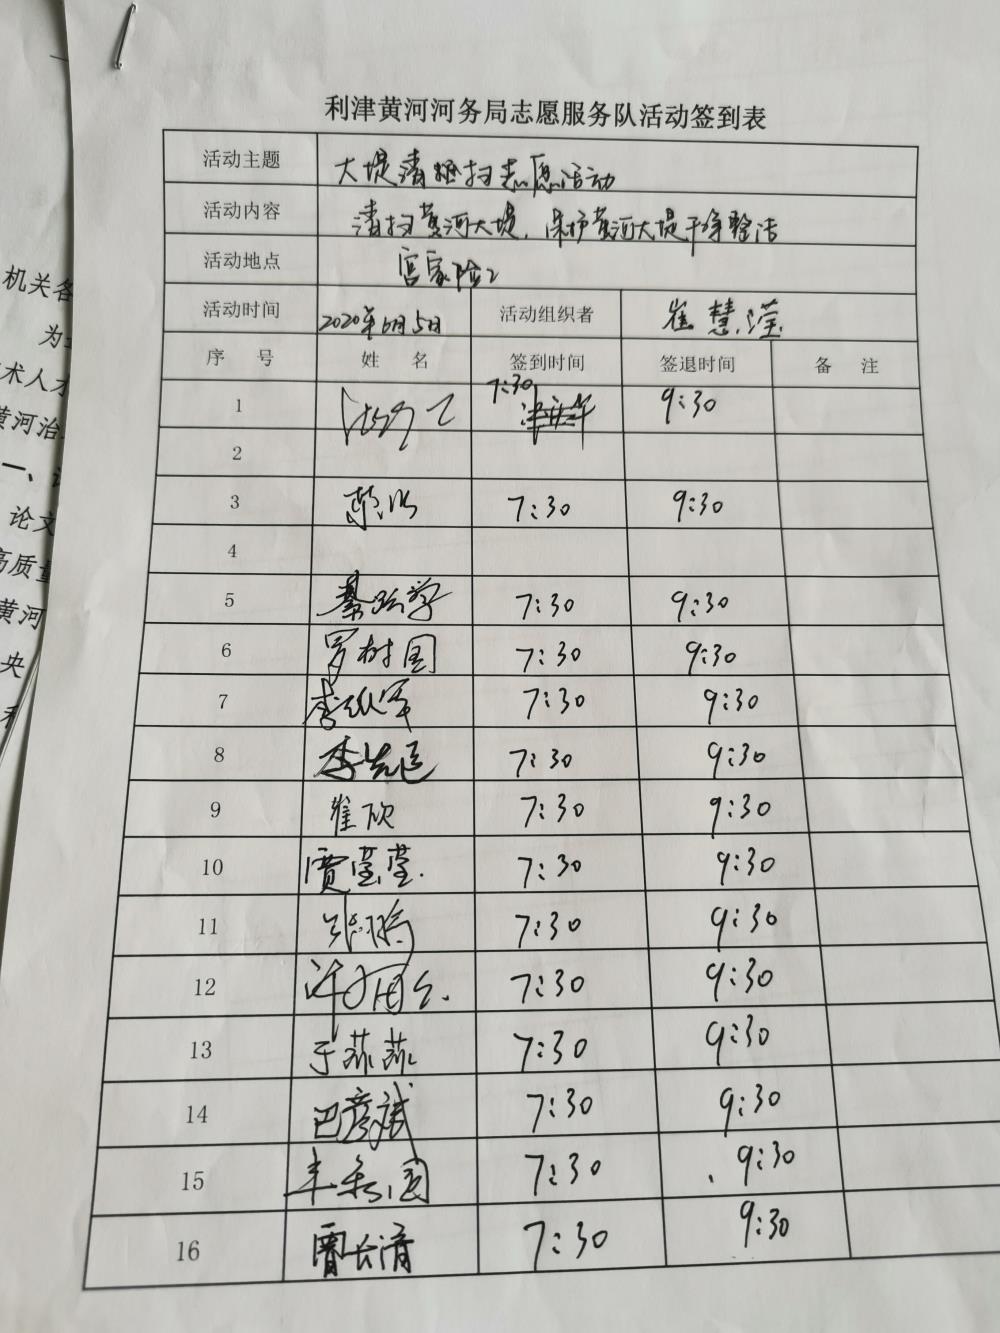 利津黄河河务局志愿服务队活动签到表
活动主题 大堤清扫志愿活动
活动内容 清扫黄河大堤，保护黄河大堤干净整洁
活动地点 宫家险工
活动时间 2020年6月5日 活动组织者 崔慧滢
序 号 姓 名 签到时间 签退时间 备 注
1 7:30 9:30
2
3 7:30 9:30
4
5 7:30 9:30
6 罗树国 7:30 9:30
7 李 军 7:30 9:30
8 李先 7:30 9:30
9 崔欣 7:30 9:30
10 贾莹莹 7:30 9:30
11 张 7:30 9:30
12 许 7:30 9:30
13 于燕燕 7:30 9:30
14 巴彦斌 7:30 9:30
15 国 7:30 9:30
16 贾长清 7:30 9:30
机关各
为
术人才
黄河治
一、
论文
高质量
黄河
央